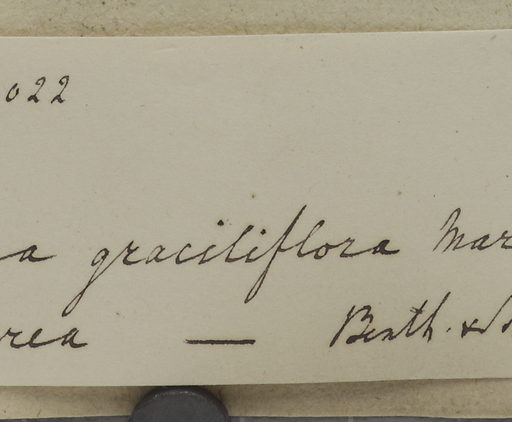 022
a graciliflora Mar
rea — Benth. &